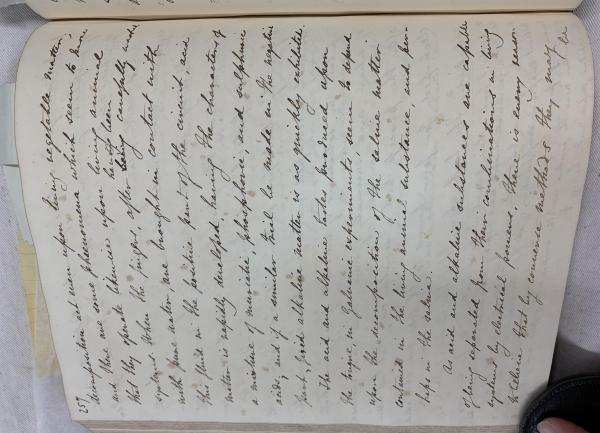 257
decomposition at even upon living vegetable matter;
and there are some phenomena which seem to prove
that they operate likewise upon living animal
systems. When the fingers, after having been carefully washed
with pure water, are brought in contact with
this fluid in the positive part of the circuit, acid
matter is rapidly developed, having the characters of
a mixture of muriatic, phosphoric, and sulphuric
acids; and if a similar trial be made in the negative
part, fixed alkaline matter is as quickly exhibited.
The acid and alkaline tastes produced upon
the tongue, in Galvanic experiments, seem to depend
upon the decomposition of the saline matter
contained in the living animal substance, and per-
haps in the saliva.
As acid and alkaline substances are capable
of being separated from their combinations in living
systems by electrical powers, there is every reason
to believe that by converse methods they may
be